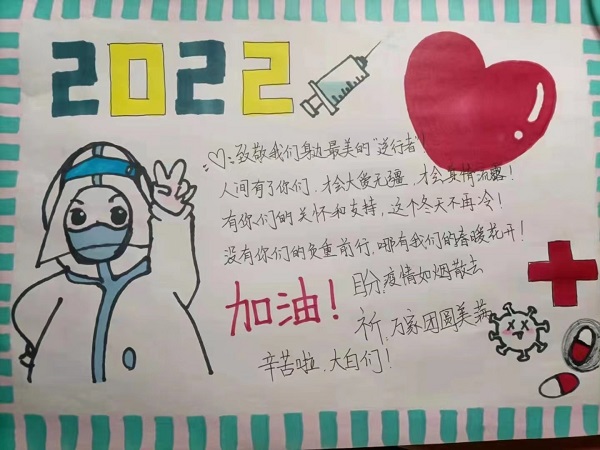 2022
♡:致敬我们身边最美的"逆行者"!
人间有了你们,才会大爱无疆,才会真情流露!
有你们的关怀和支持,这个冬天不再冷!
没有你们的负重前行,哪有我们的春暖花开!
加油!
盼:疫情如烟散去
祈:万家团圆美满
辛苦啦,大白们!